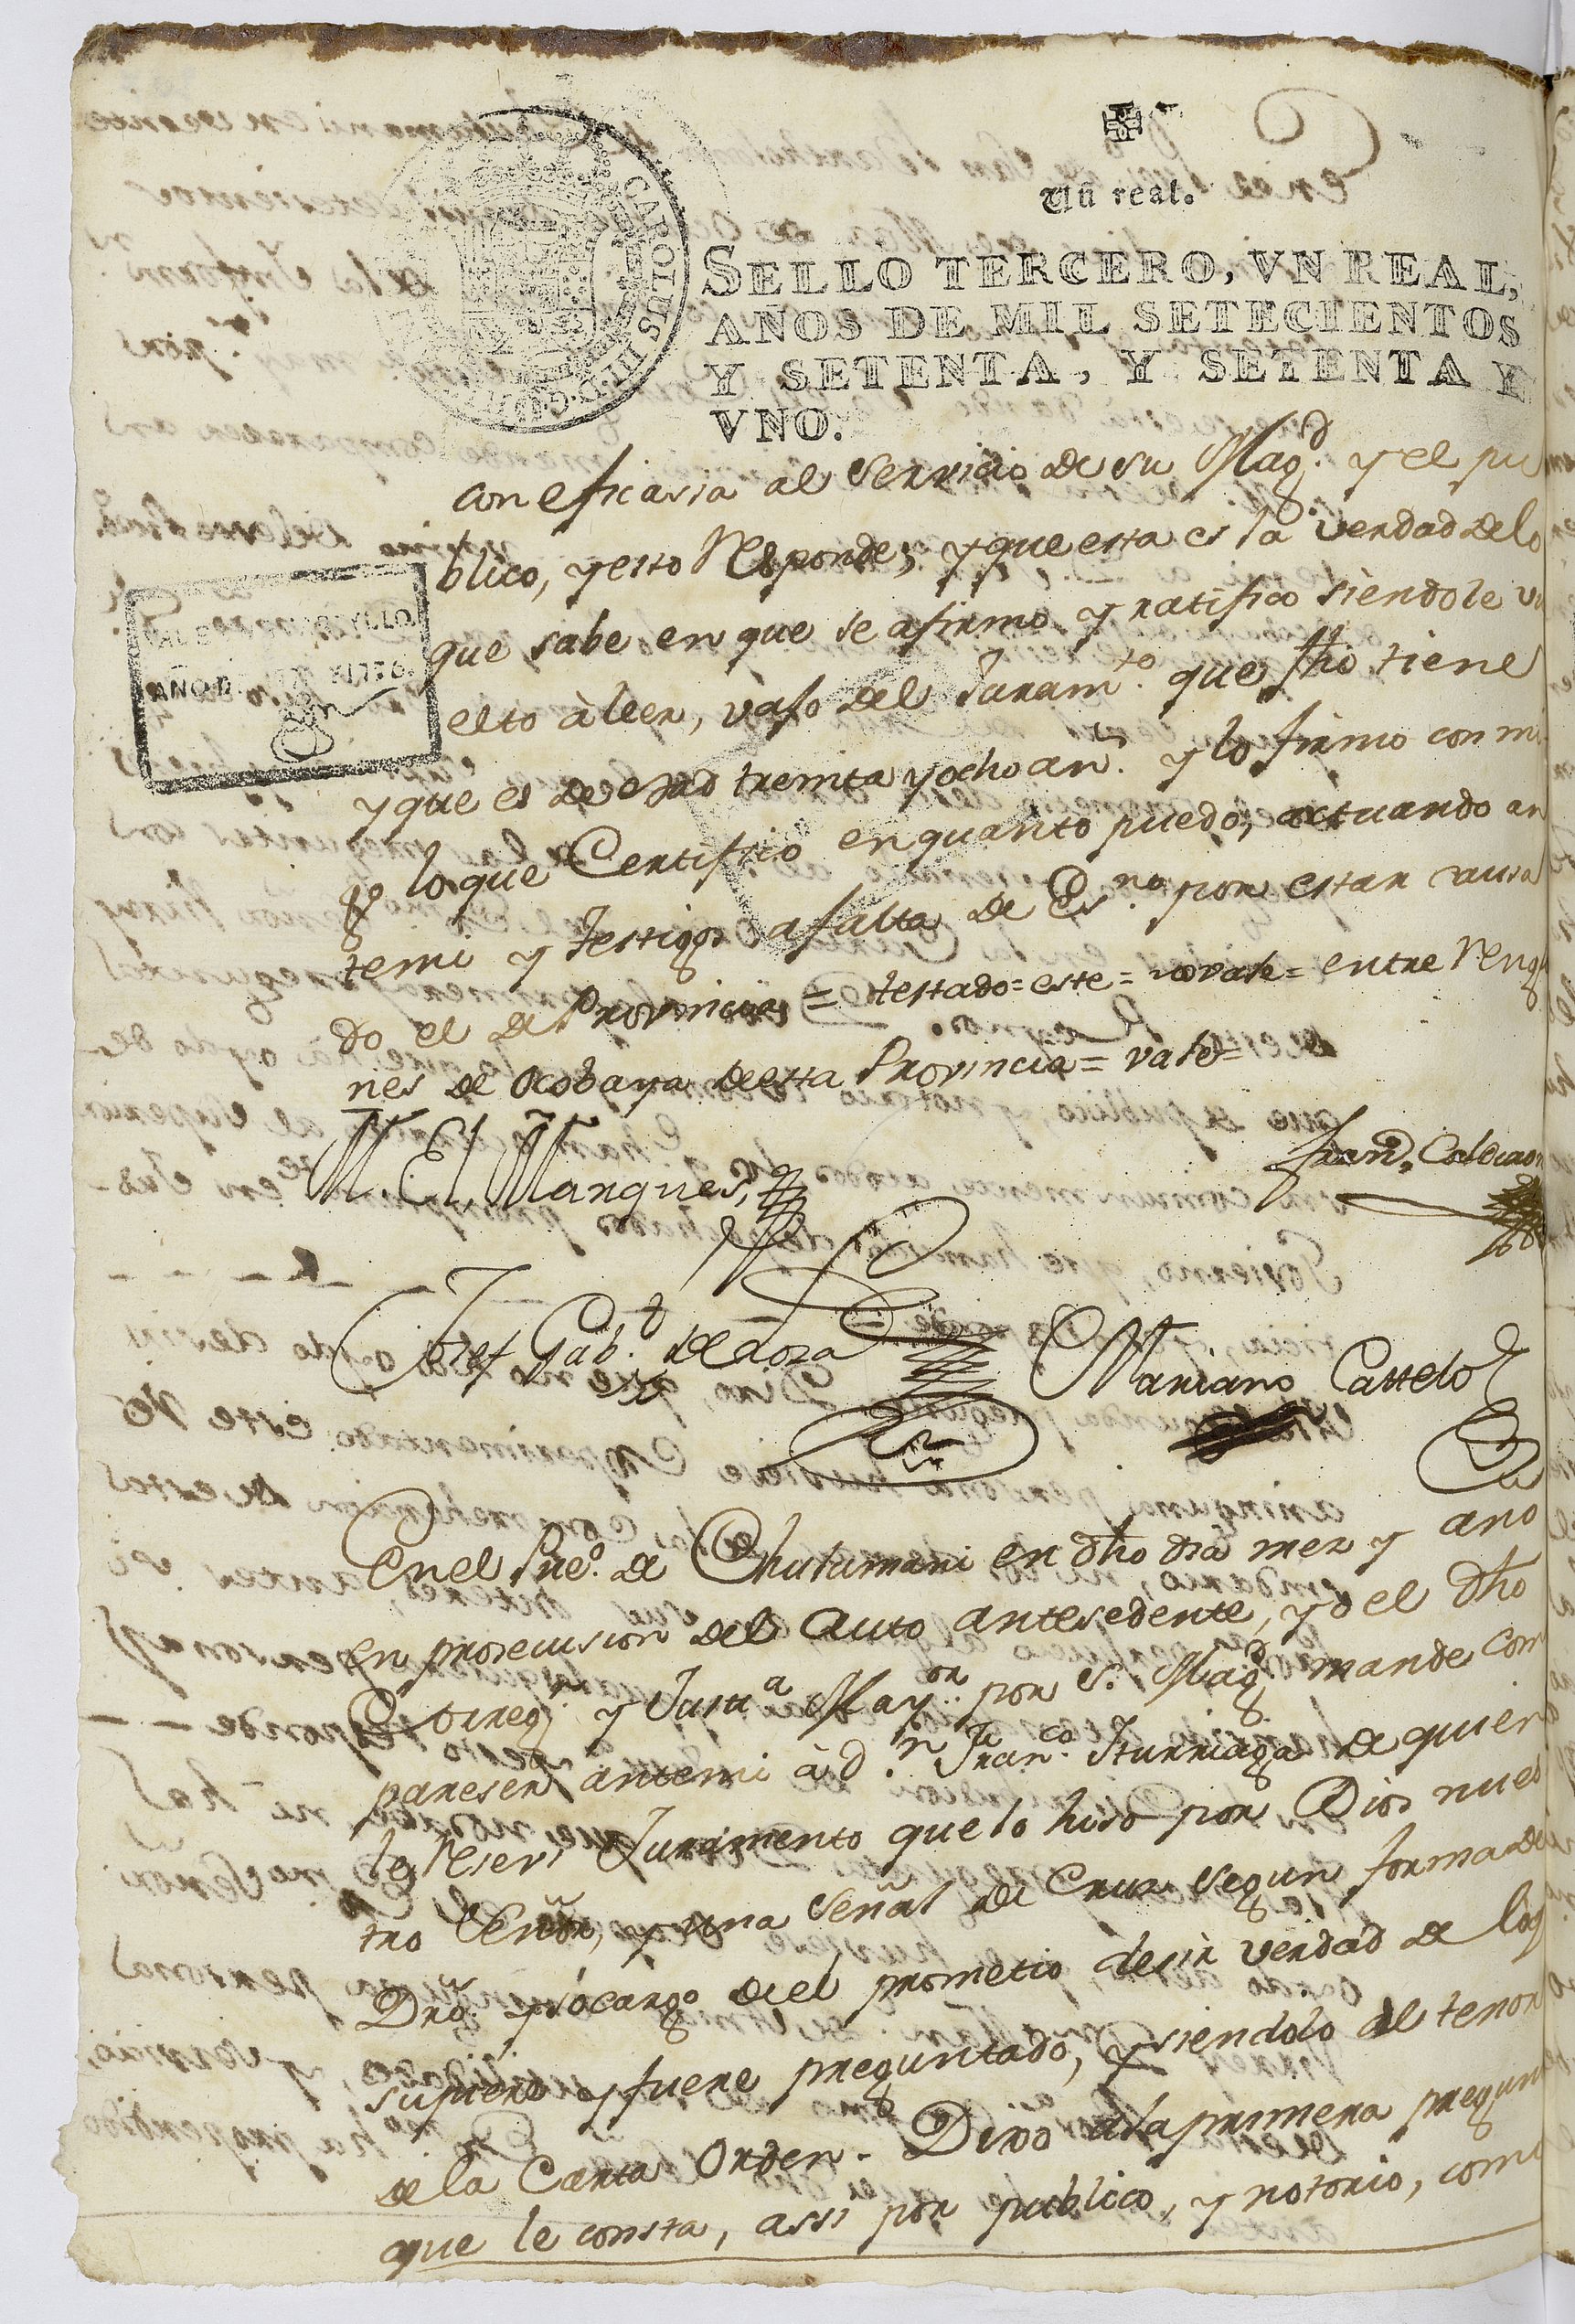 Un real.
CAROLUS III D.G.
SELLO TERCERO, VN REAL,
AÑOS DE MIL SETECIENTOS
Y SETENTA, Y SETENTA Y
VNO.
con eficasia al Servicio de su Magd. y el pu
blico, y esto Responde; y que esta es la verdad de lo
que sabe en que se afirmo y ratifico siendole vu
elto à leer, vajo del Juramto. que fho tiene
y que es de edad treinta y ocho ans. y lo firmo con mi
go lo que Certifico en quanto puedo, actuando an
temi y testigos a falta de Esno. por estar ausa
do el de Provincias = testado = este = no vale = entre Reng
nes de Ocobaya de esta Provincia = vale =
M. El Marques,
Frand. Calderon
Josef Gabl. de Loza
Mariano Castelo
En el Pueo. de Chulumani en dho dia mez y ano
en prosecusion del Auto antesedente, yo el dho
Corregr. y Justa Mayor. por S. Magd. mande com
pareser antemi à dn. Franco. Iturriaga de quien
le Resevi Juramento que lo hiso por Dios nues
tro Señor, y una Señal de Cruz segun forma de
Dro. y so cargo de el prometio desir verdad de loq
supiere y fuere preguntado, y siendolo al tenor
de la Carta Orden. Dixo a la primera pregun
que le consta, assi por publico, y notorio, como